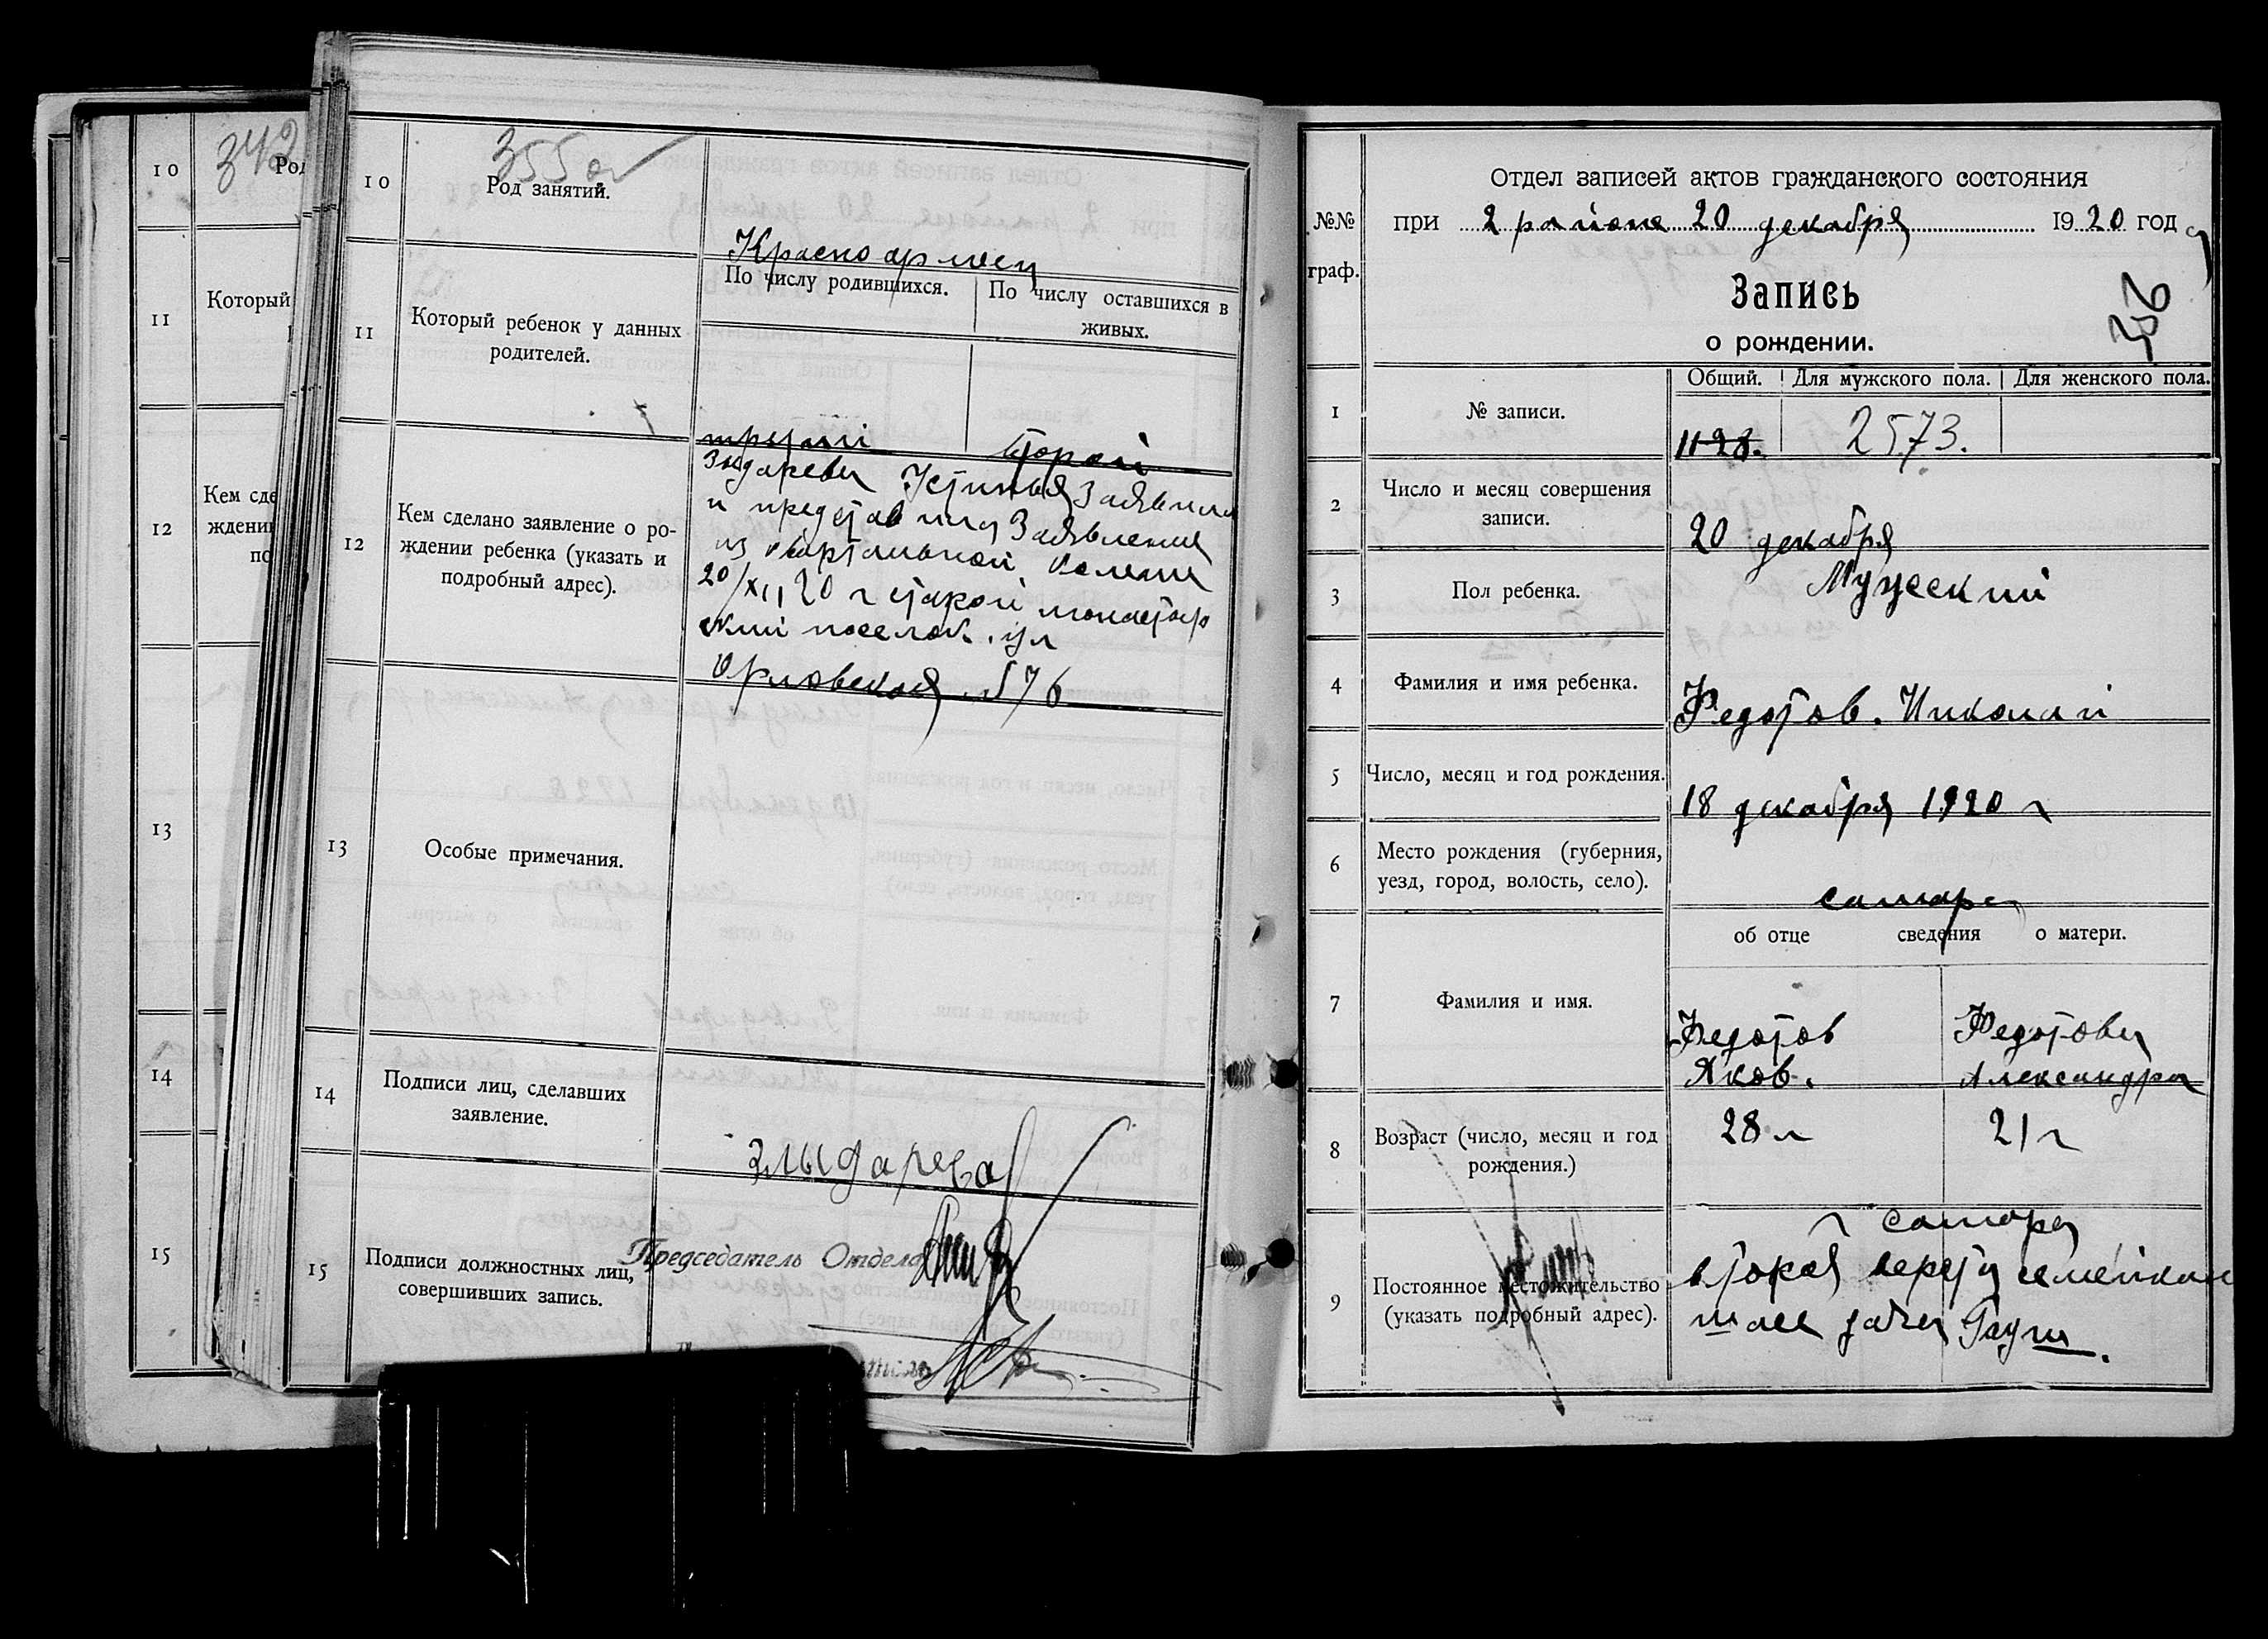 10
342
Род
11
Который
12
Кем сде
ждении
по
13
14
15
355 об
10
Род занятий.
Красноармеец
11
Который ребенок у данных
родителей.
По числу родившихся.
По числу оставшихся в
живых.
третий
второй
12
Кем сделано заявление о ро-
ждении ребенка (указать и
подробный адрес).
Устинья Заявила
и представила Заявление
из квартальной
20/XII 20 г
поселок. ул
Орловская № 76
13
Особые примечания.
14
Подписи лиц, сделавших
заявление.
Злыдарева
15
Подписи должностных лиц,
совершивших запись.
Председатель Отдела
№№
граф.
Отдел записей актов гражданского состояния
при 2 районе 20 декабря 1920 год
Запись
о рождении.
356
1
№ записи.
Общий.
Для мужского пола.
Для женского пола.
1128.
2573.
2
Число и месяц совершения
записи.
20 декабря
3
Пол ребенка.
Мужеский
4
Фамилия и имя ребенка.
Федотов. Николай
5
Число, месяц и год рождения.
18 декабря 1920 г
6
Место рождения (губерния,
уезд, город, волость, село).
самара
об отце сведения о матери.
7
Фамилия и имя.
Федотов
Яков.
Федотова
Александра
8
Возраст (число, месяц и год
рождения.)
28 л
21 г
9
Постоянное местожительство
(указать подробный адрес).
г самара
вторая верста семейкин
шоссе дача Гауш.